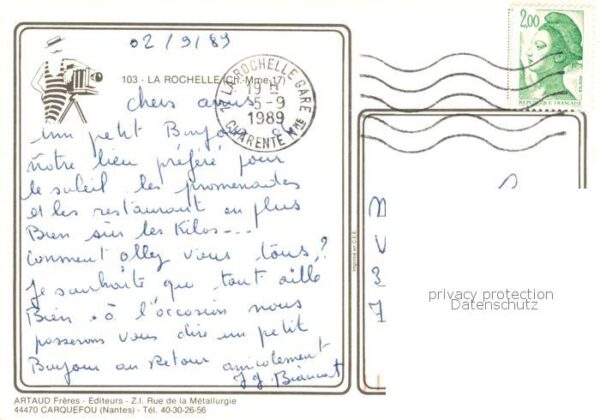 02/9/89
103 - LA ROCHELLE (Ch.-Mme 17)
LA ROCHELLE GARE
19 H
5-9
1989
CHARENTE Mme
2,00
REPUBLIQUE FRANÇAISE
chers amis
un petit Bonjour de
notre lieu préféré pour
le soleil les promenades
et les restaurant en plus
Bien sur les Kilos---
comment allez vous tous?
Je souhaite que tout aille
Bien. à l'occasion nous
passerons vous dire un petit
Bonjour au Retour amicalement
J.J.
M
V
3
7
Imprimé en C.E.E.
privacy protection
Datenschutz
ARTAUD Frères - Editeurs - Z.I. Rue de la Métallurgie
44470 CARQUEFOU (Nantes) - Tél. 40-30-26-56